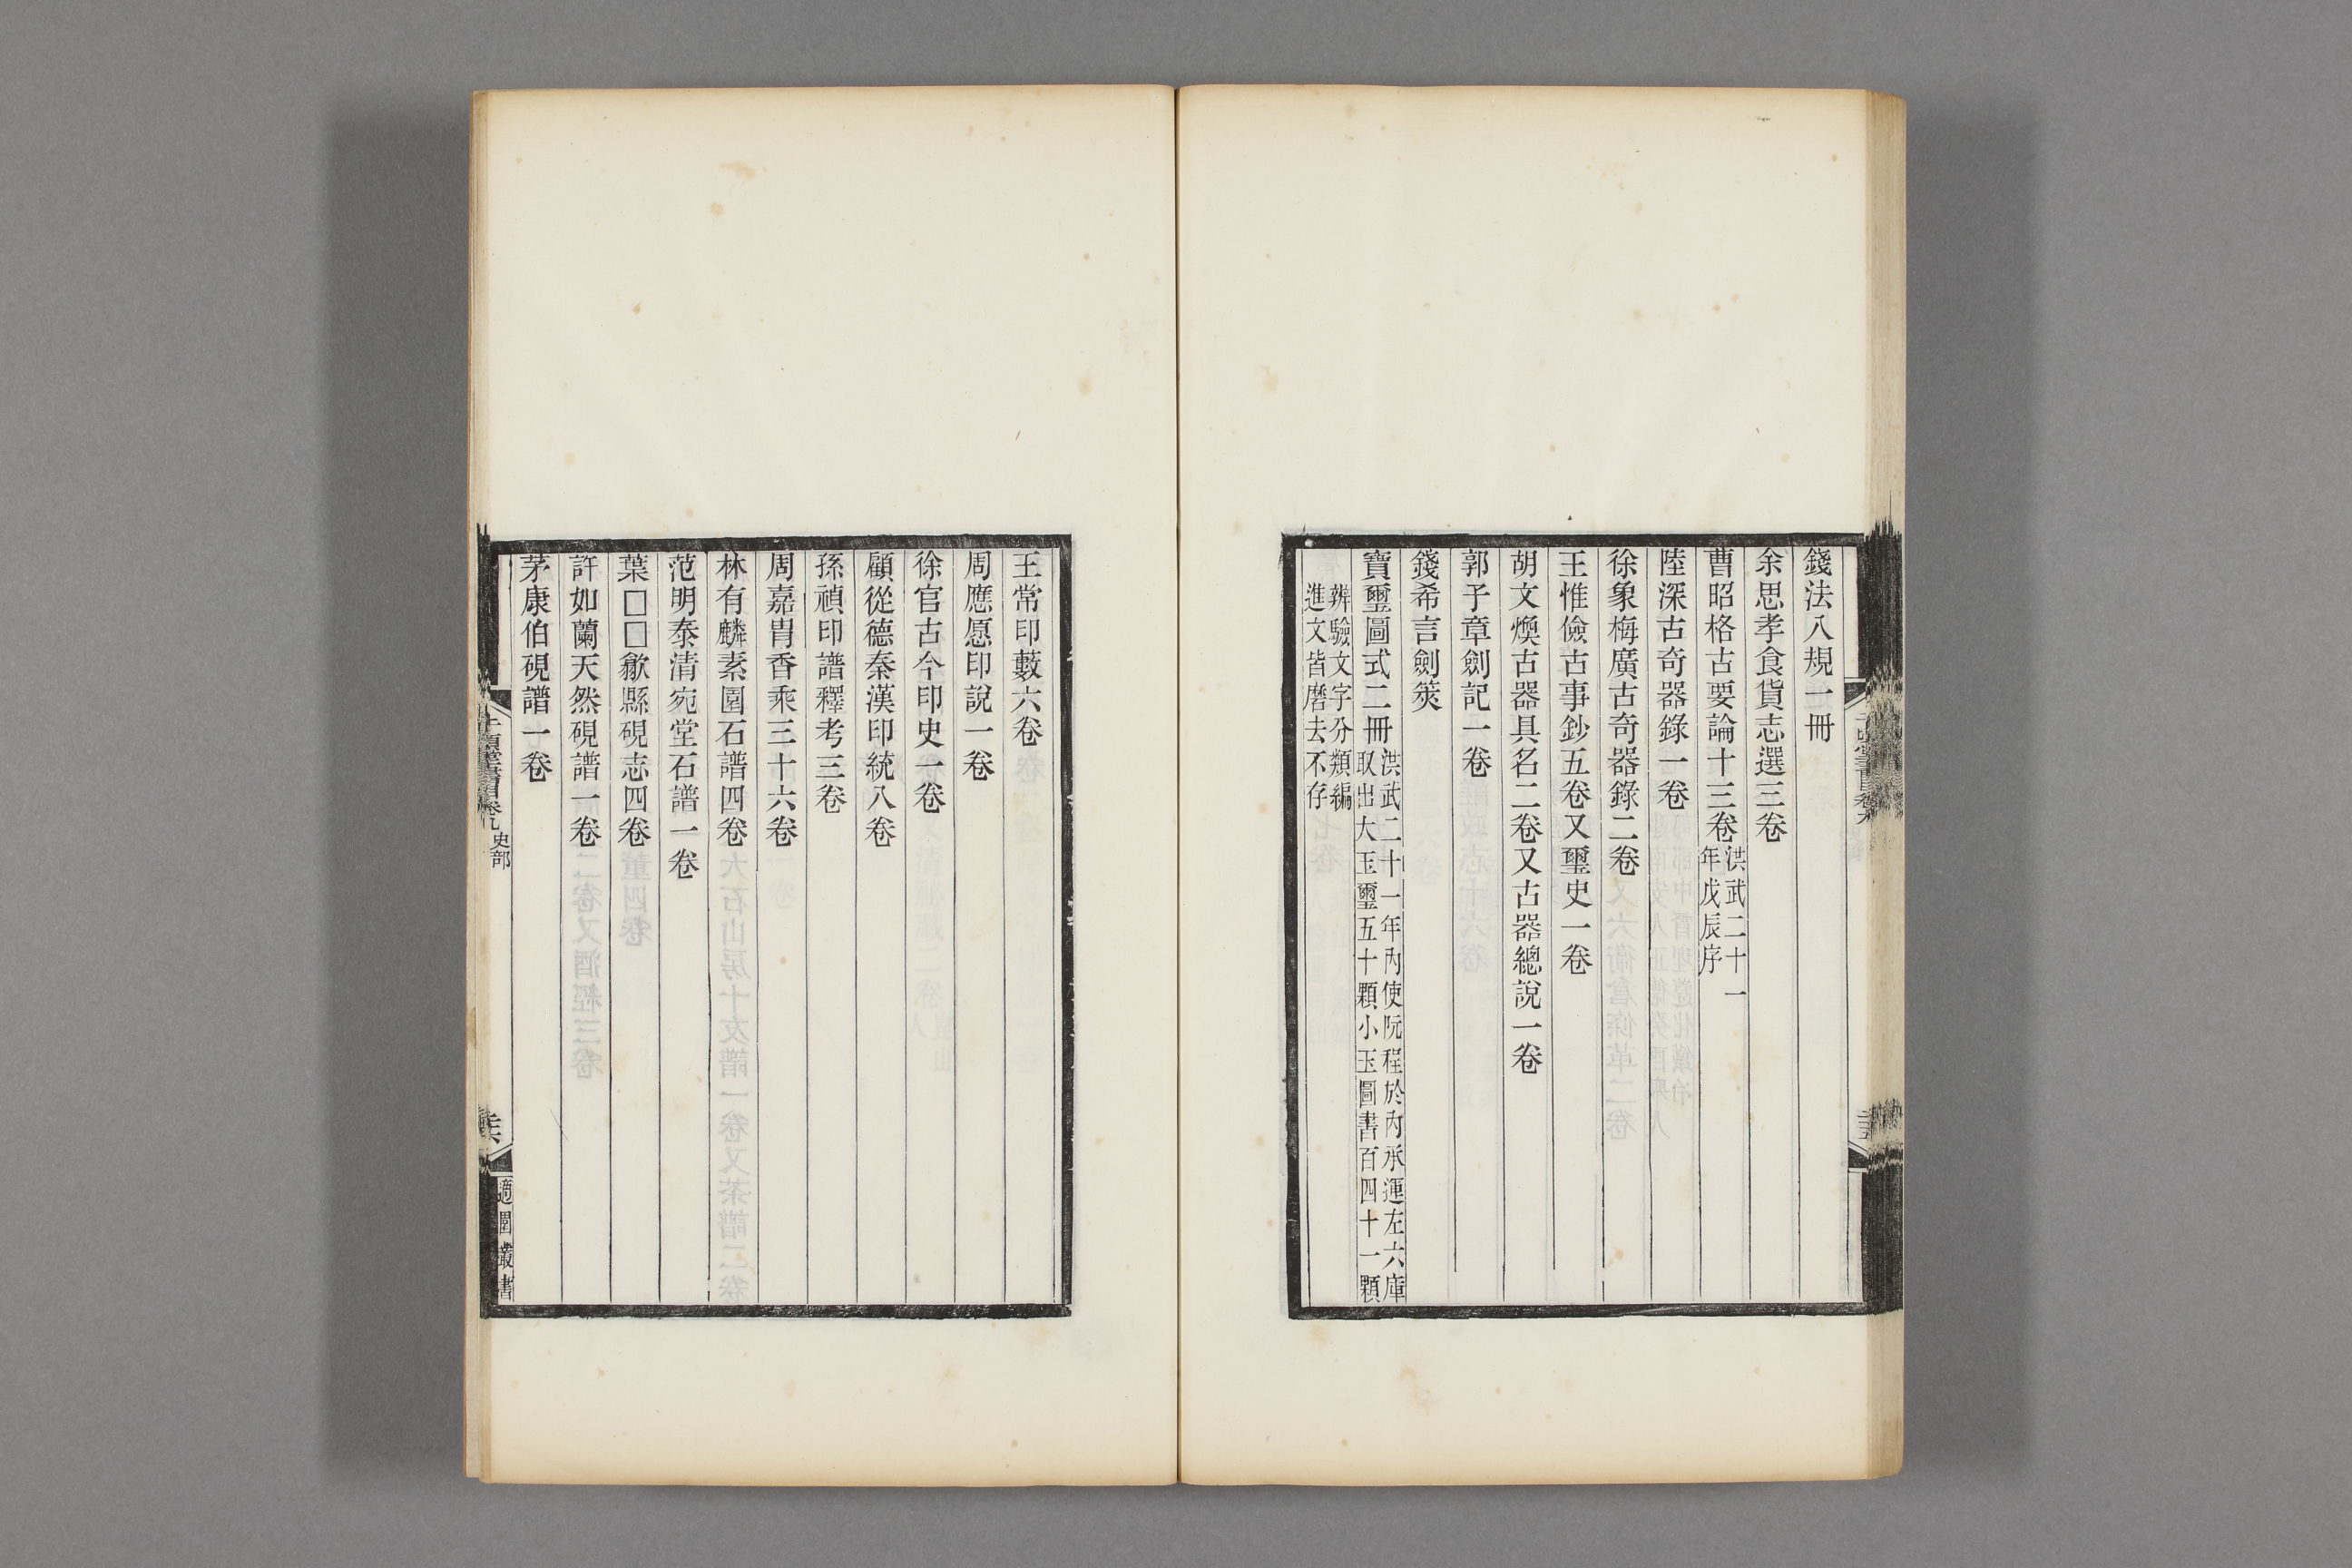 錢法八規一冊
余思孝食貨志選三卷
曹昭格古要論十三卷洪武二十一
年戊辰序
陸深古奇器錄一卷
徐象梅廣古奇器錄二卷
王惟儉古事鈔五卷又璽史一卷
胡文煥古器具名二卷又古器總說一卷
郭子章劍記一卷
錢希言劍筴
寶璽圖式二冊洪武二十一年內使阮程於內承運左六庫
取出大玉璽五十顆小玉圖書百四十一顆
辨驗文字分類編
進文皆磨去不存
王常印藪六卷
周應愿印說一卷
徐官古今印史一卷
顧從德秦漢印統八卷
孫禎印譜釋考三卷
周嘉胄香乘三十六卷
林有麟素園石譜四卷
范明泰清宛堂石譜一卷
葉□□歙縣硯志四卷
許如蘭天然硯譜一卷
茅康伯硯譜一卷
史部
適園叢書